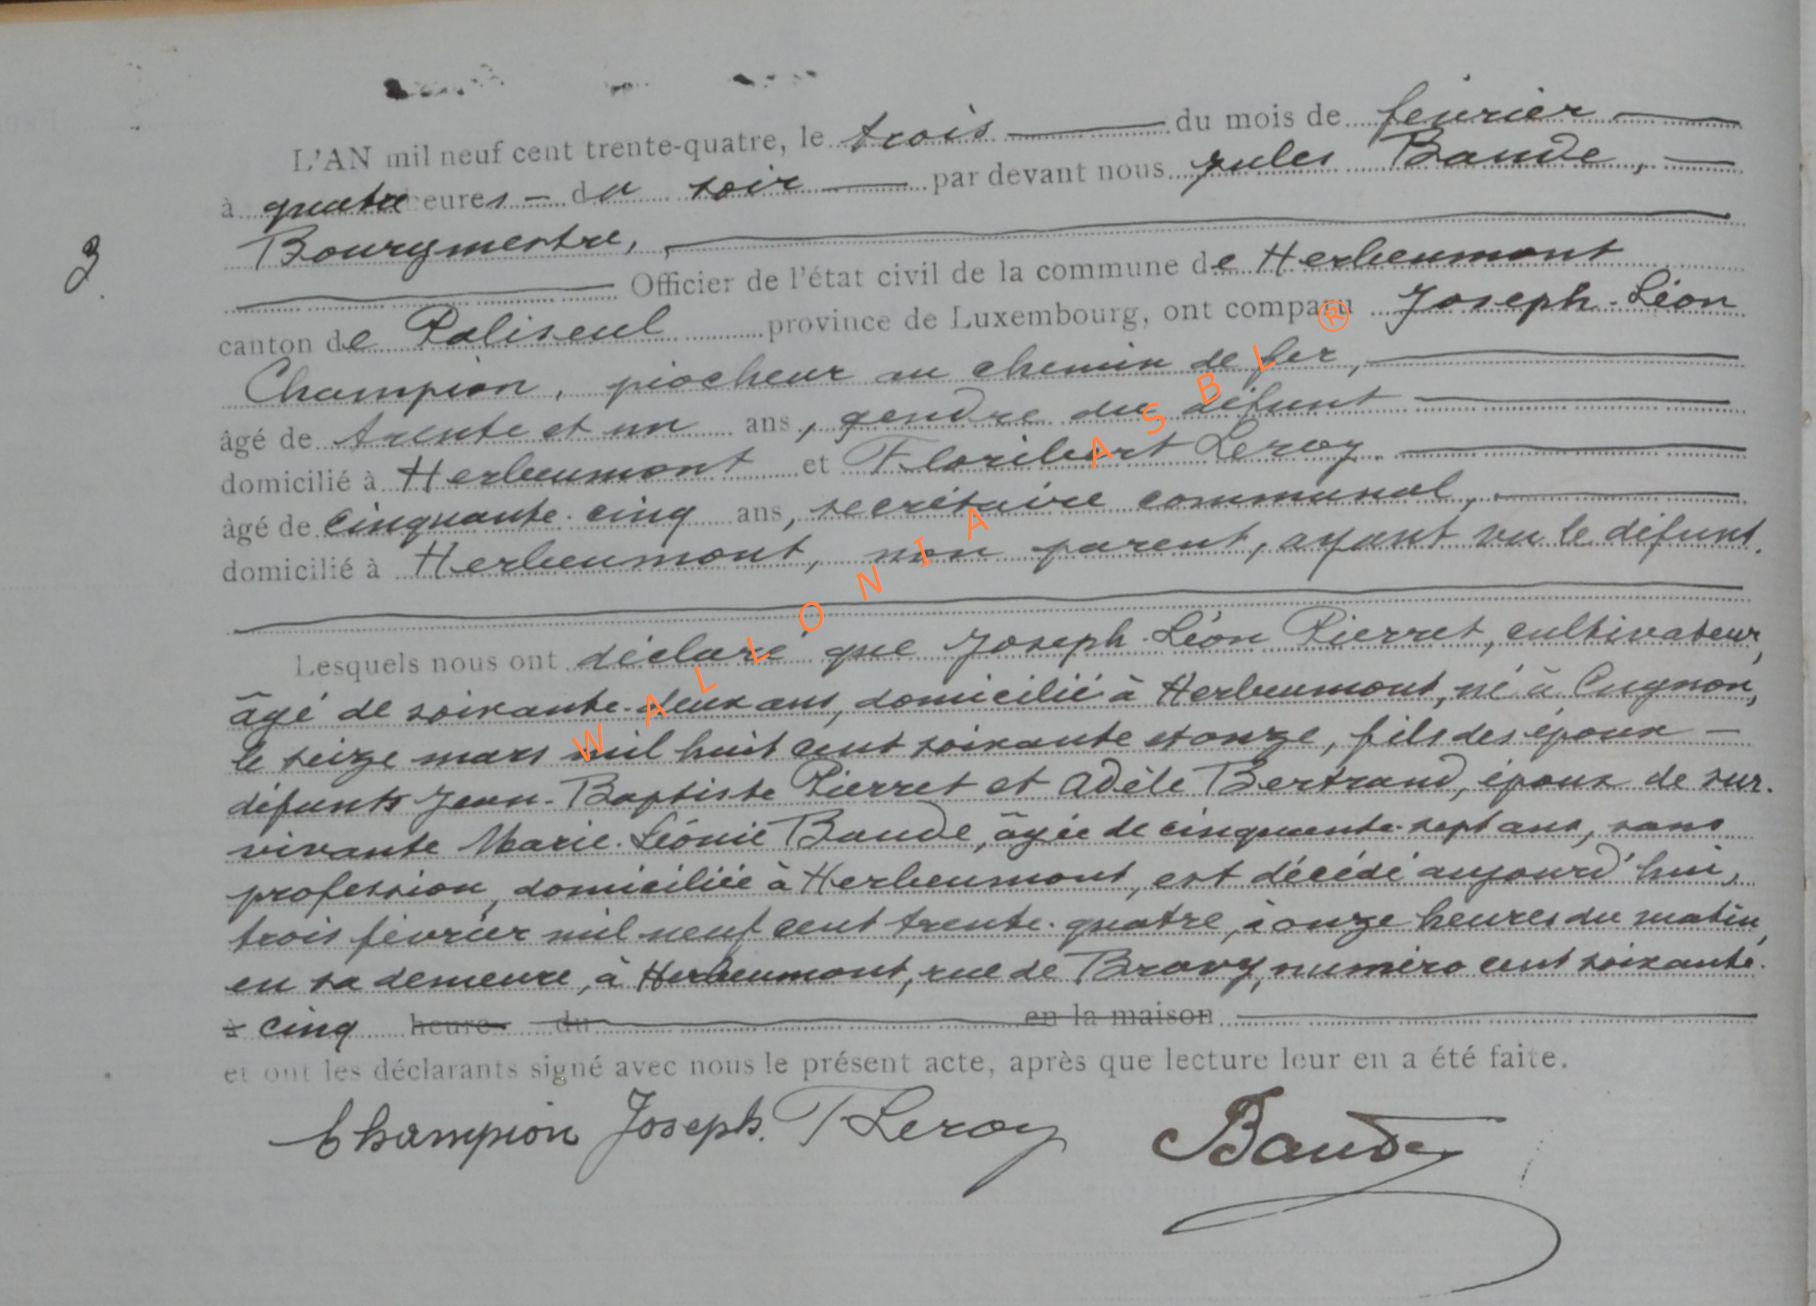 L'AN mil neuf cent trente-quatre, le trois du mois de février
à quatre heures - du soir par devant nous Jules Baude,
3
Bourgmestre,
Officier de l'état civil de la commune de Herbeumont
canton de Paliseul province de Luxembourg, ont comparu Joseph-Léon
Champion, piocheur au chemin de fer,
âgé de trente et un ans, gendre du défunt
domicilié à Herbeumont et Floribert Leroy
âgé de cinquante-cinq ans, secrétaire communal,
domicilié à Herbeumont, non parent, ayant vu le défunt.
Lesquels nous ont déclaré que Joseph-Léon Pierret, cultivateur,
âgé de soixante-deux ans, domicilié à Herbeumont, né à Cugnon,
le seize mars mil huit cent soixante et onze, fils des époux -
défunts Jean-Baptiste Pierret et Adèle Bertrand, époux de sur-
vivante Marie-Léonie Baude, âgée de cinquante-sept ans, sans
profession, domiciliée à Herbeumont, est décédé aujourd'hui,
trois février mil neuf cent trente-quatre, à onze heures du matin,
en sa demeure, à Herbeumont, rue de Bravy, numéro cent soixante-
à cinq heure du en la maison
et ont les déclarants signé avec nous le présent acte, après que lecture leur en a été faite.
Champion Joseph. F Leroy Baude
WALLONIA ASBL ®